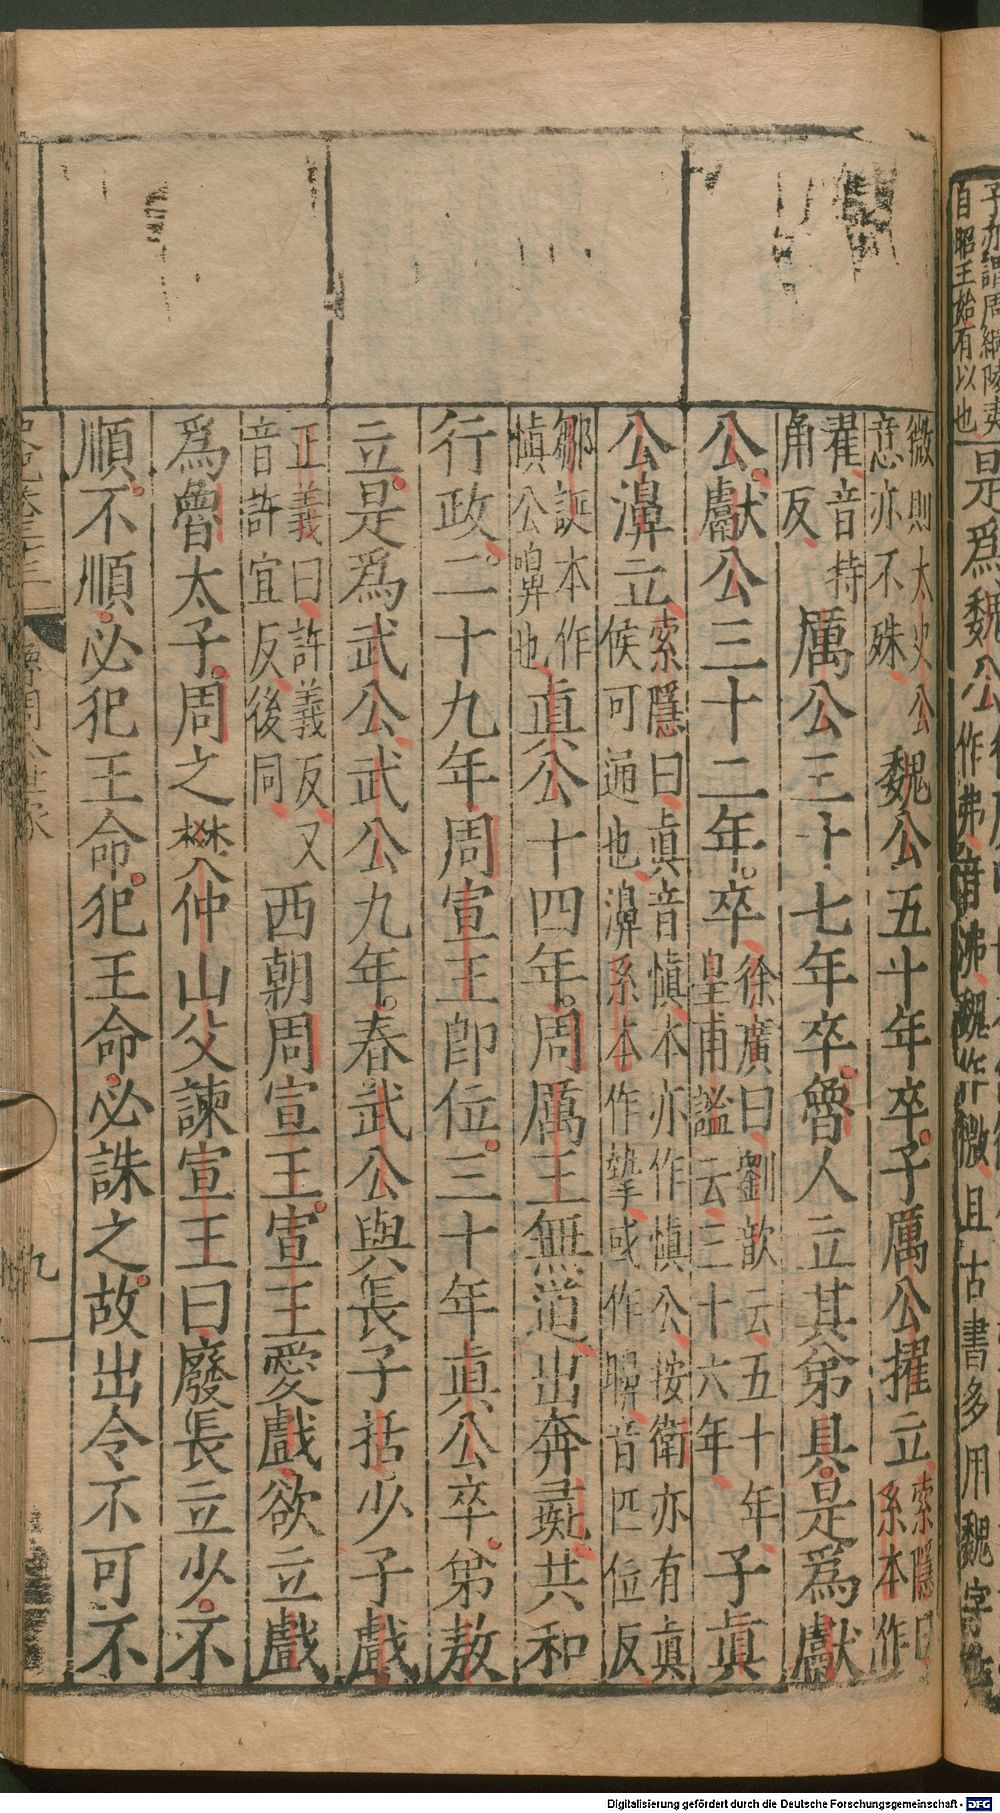 子亦謂周綱陵夷
自昭王始有以也
是爲魏公
作弗音沸魏作微且古書多用魏字
微則太史公
意亦不殊
魏公五十年卒子厲公擢立
索隱曰
系本作
翟音持
角反
厲公三十七年卒魯人立其弟具是爲獻
公獻公三十二年卒
徐廣曰劉歆云五十年
皇甫謐云三十六年
子眞
公濞立
索隱曰眞音愼本亦作愼公按衛亦有眞
侯可通也濞系本作摯或作嚊音匹位反
鄒誕本作
愼公嚊也
眞公十四年周厲王無道出奔彘共和
行政二十九年周宣王卽位三十年眞公卒弟敖
立是爲武公武公九年春武公與長子括少子戲
正義曰許義反又
音許宜反後同
西朝周宣王宣王愛戲欲立戲
爲魯太子周之樊仲山父諫宣王曰廢長立少不
順不順必犯王命犯王命必誅之故出令不可不
魯周公世家
九
Digitalisierung gefördert durch die Deutsche Forschungsgemeinschaft - DFG